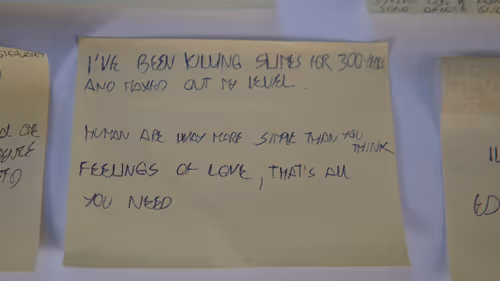 I'VE BEEN KILLING SLIMES FOR 300 YEARS
AND MAXED OUT MY LEVEL.
HUMAN ARE WAY MORE SIMPLE THAN YOU
THINK
FEELINGS OF LOVE, THAT'S ALL
YOU NEED